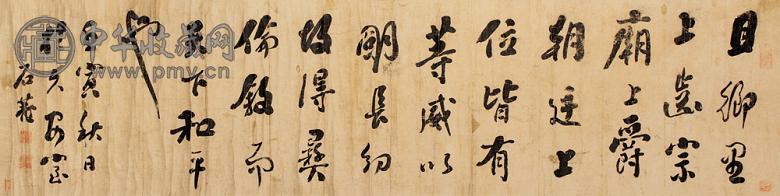 且鄉里
上齒宗
廟上爵
朝廷上
位皆有
等威以
明長幼
故得彝
倫敘而
天下和平
也
寅秋日
石菴
中华收藏网
www.pmy.cn